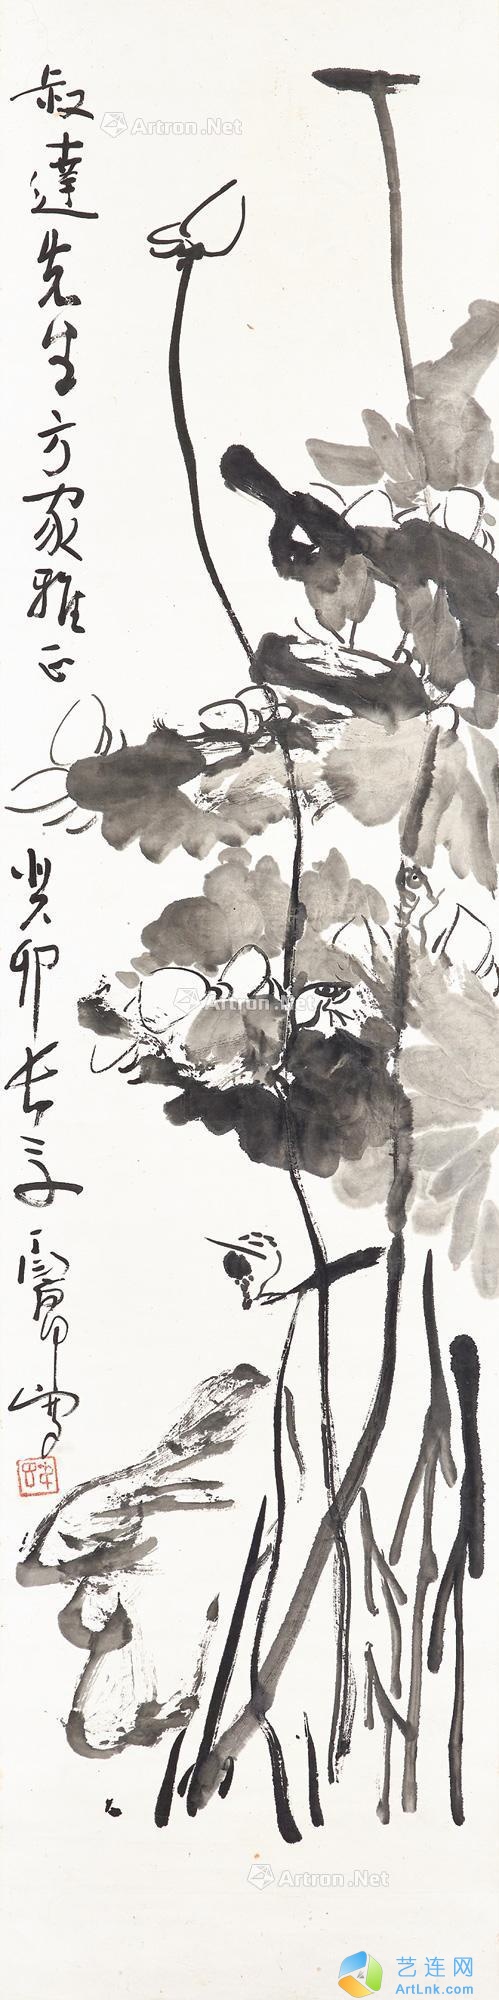 叔達先生方家雅正
癸卯長夏
丁衍庸寫
Artron.Net
Artron.Net
Artron.Net
艺连网
ArtLnk.com